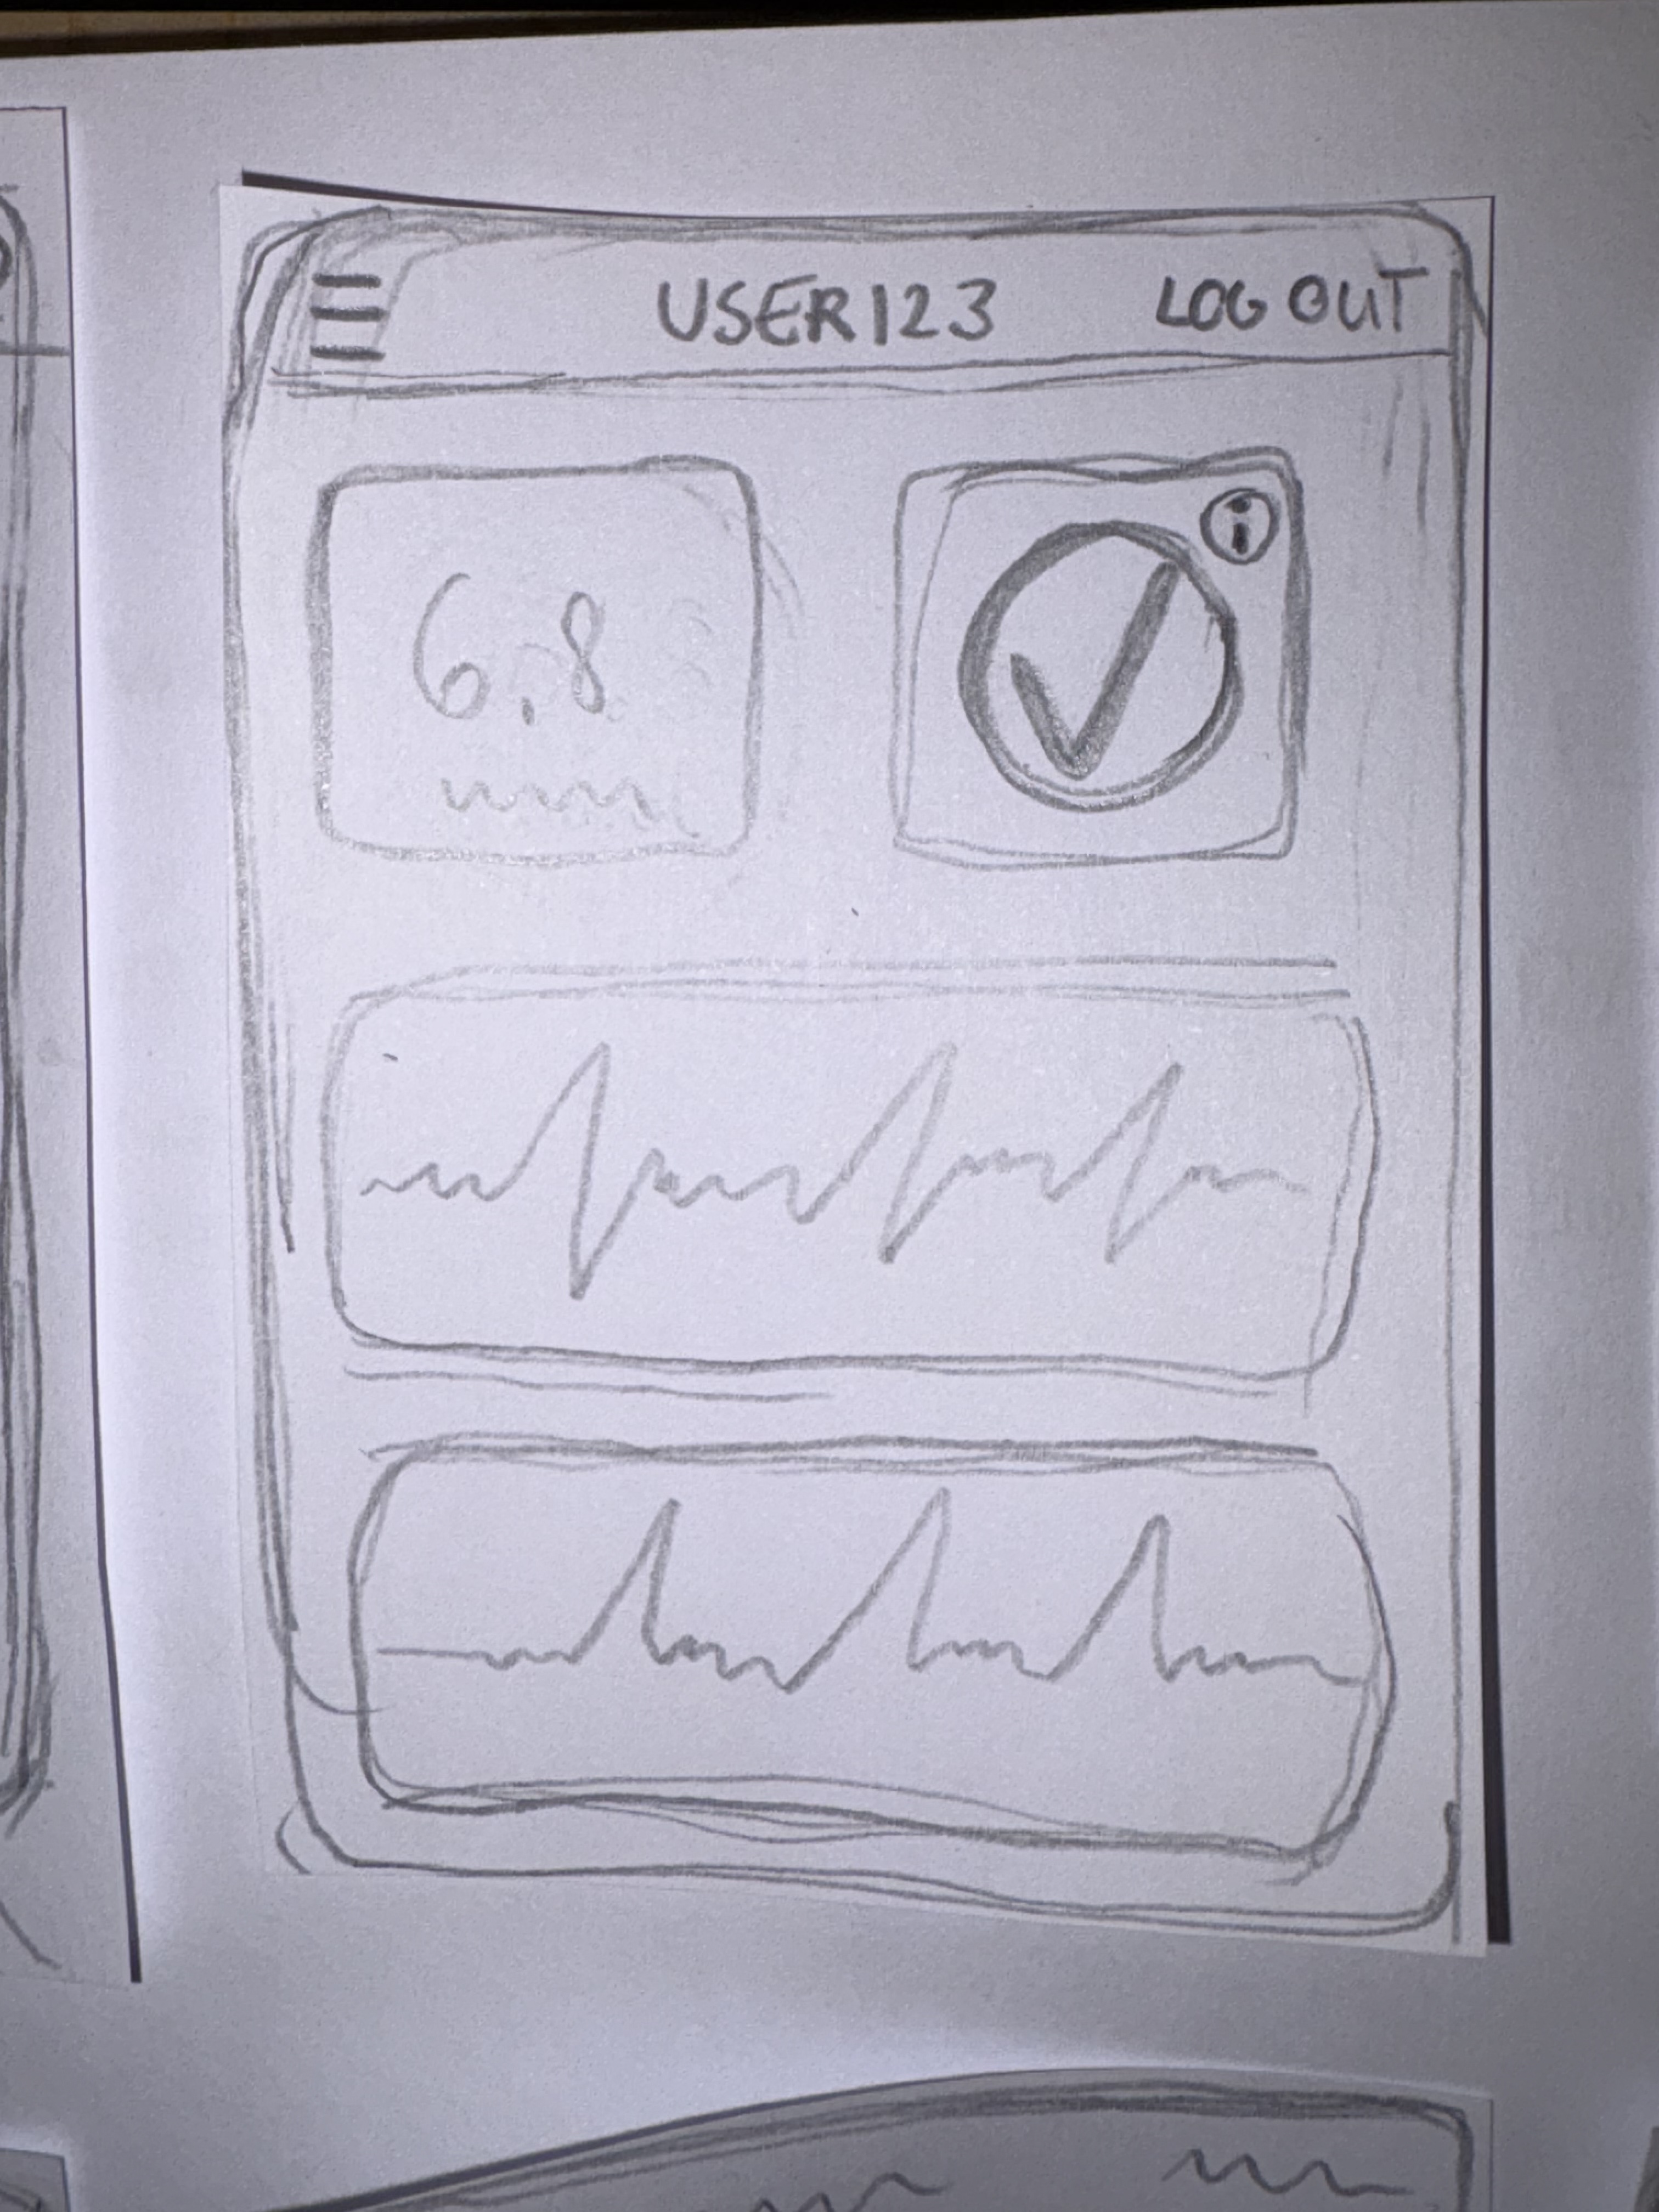 USER123 LOG OUT
i
6.8